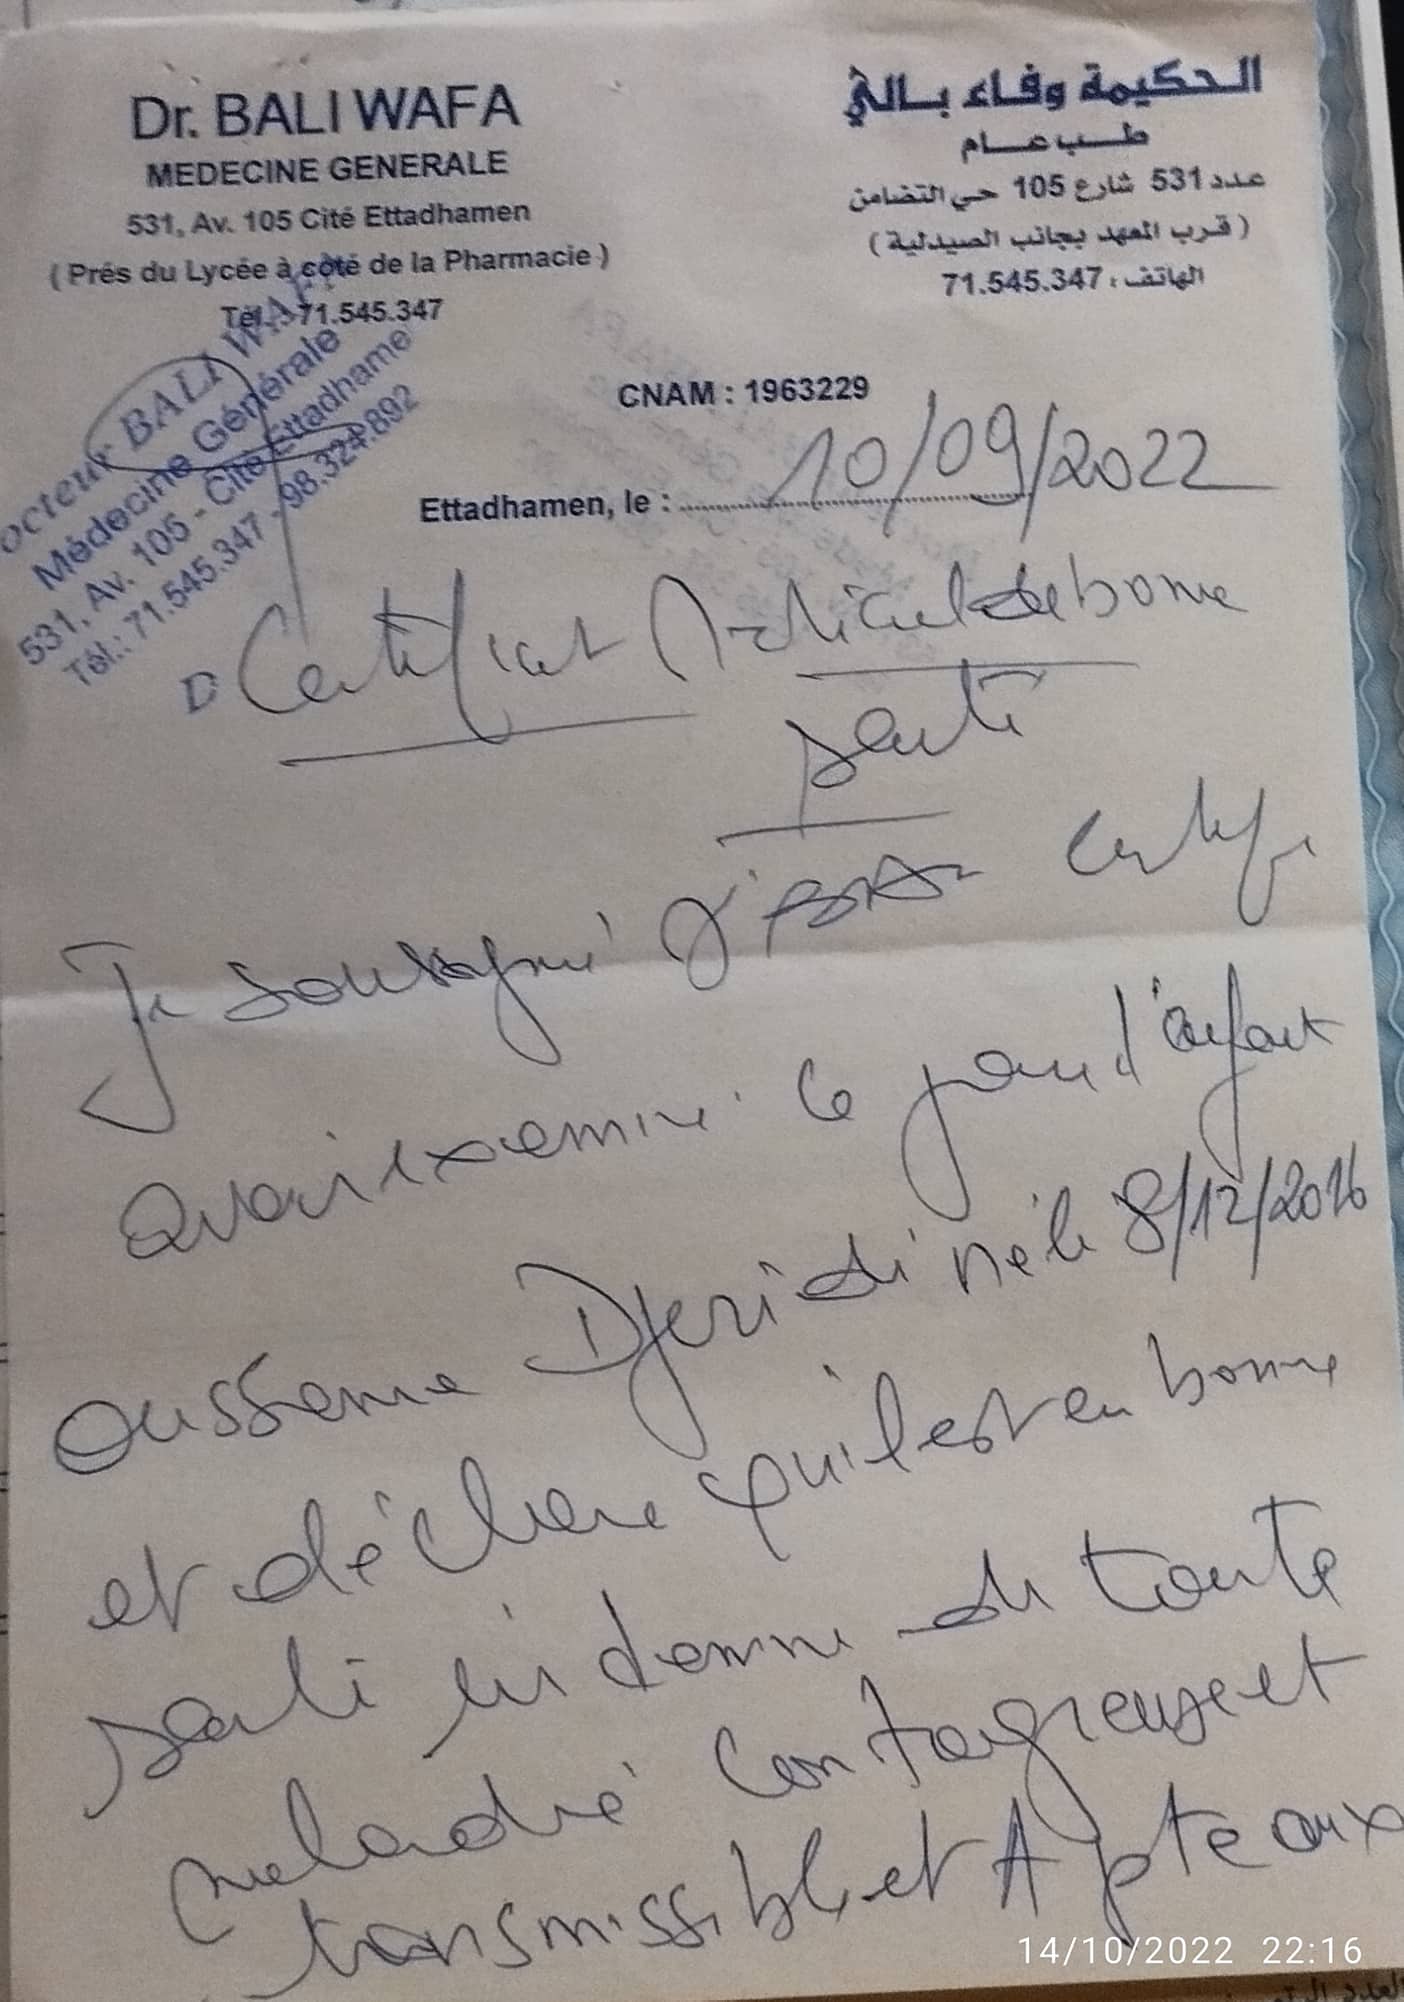 Dr. BALI WAFA
MEDECINE GENERALE
531, Av. 105 Cité Ettadhamen
( Prés du Lycée à côté de la Pharmacie )
Tél. : 71.545.347
الحكيمة وفاء بالي
طب عام
عدد 531 شارع 105 حي التضامن
( قرب المعهد بجانب الصيدلية )
الهاتف : 71.545.347
octeur BALI WAFA
Médecine Générale
531, Av. 105 - Cité Ettadhame
Tél.: 71.545.347 - 98.324.892
CNAM : 1963229
Ettadhamen, le : 10/09/2022
Certificat Médical de bonne
santé
Je soussigné certifie
avoir examiné ce jour l'enfant
oussema Djeridi né le 8/12/2016
et déclare qu'il est en bonne
santé indemne de toute
maladie contagieuse et
transmissible et Apte aux
14/10/2022 22:16